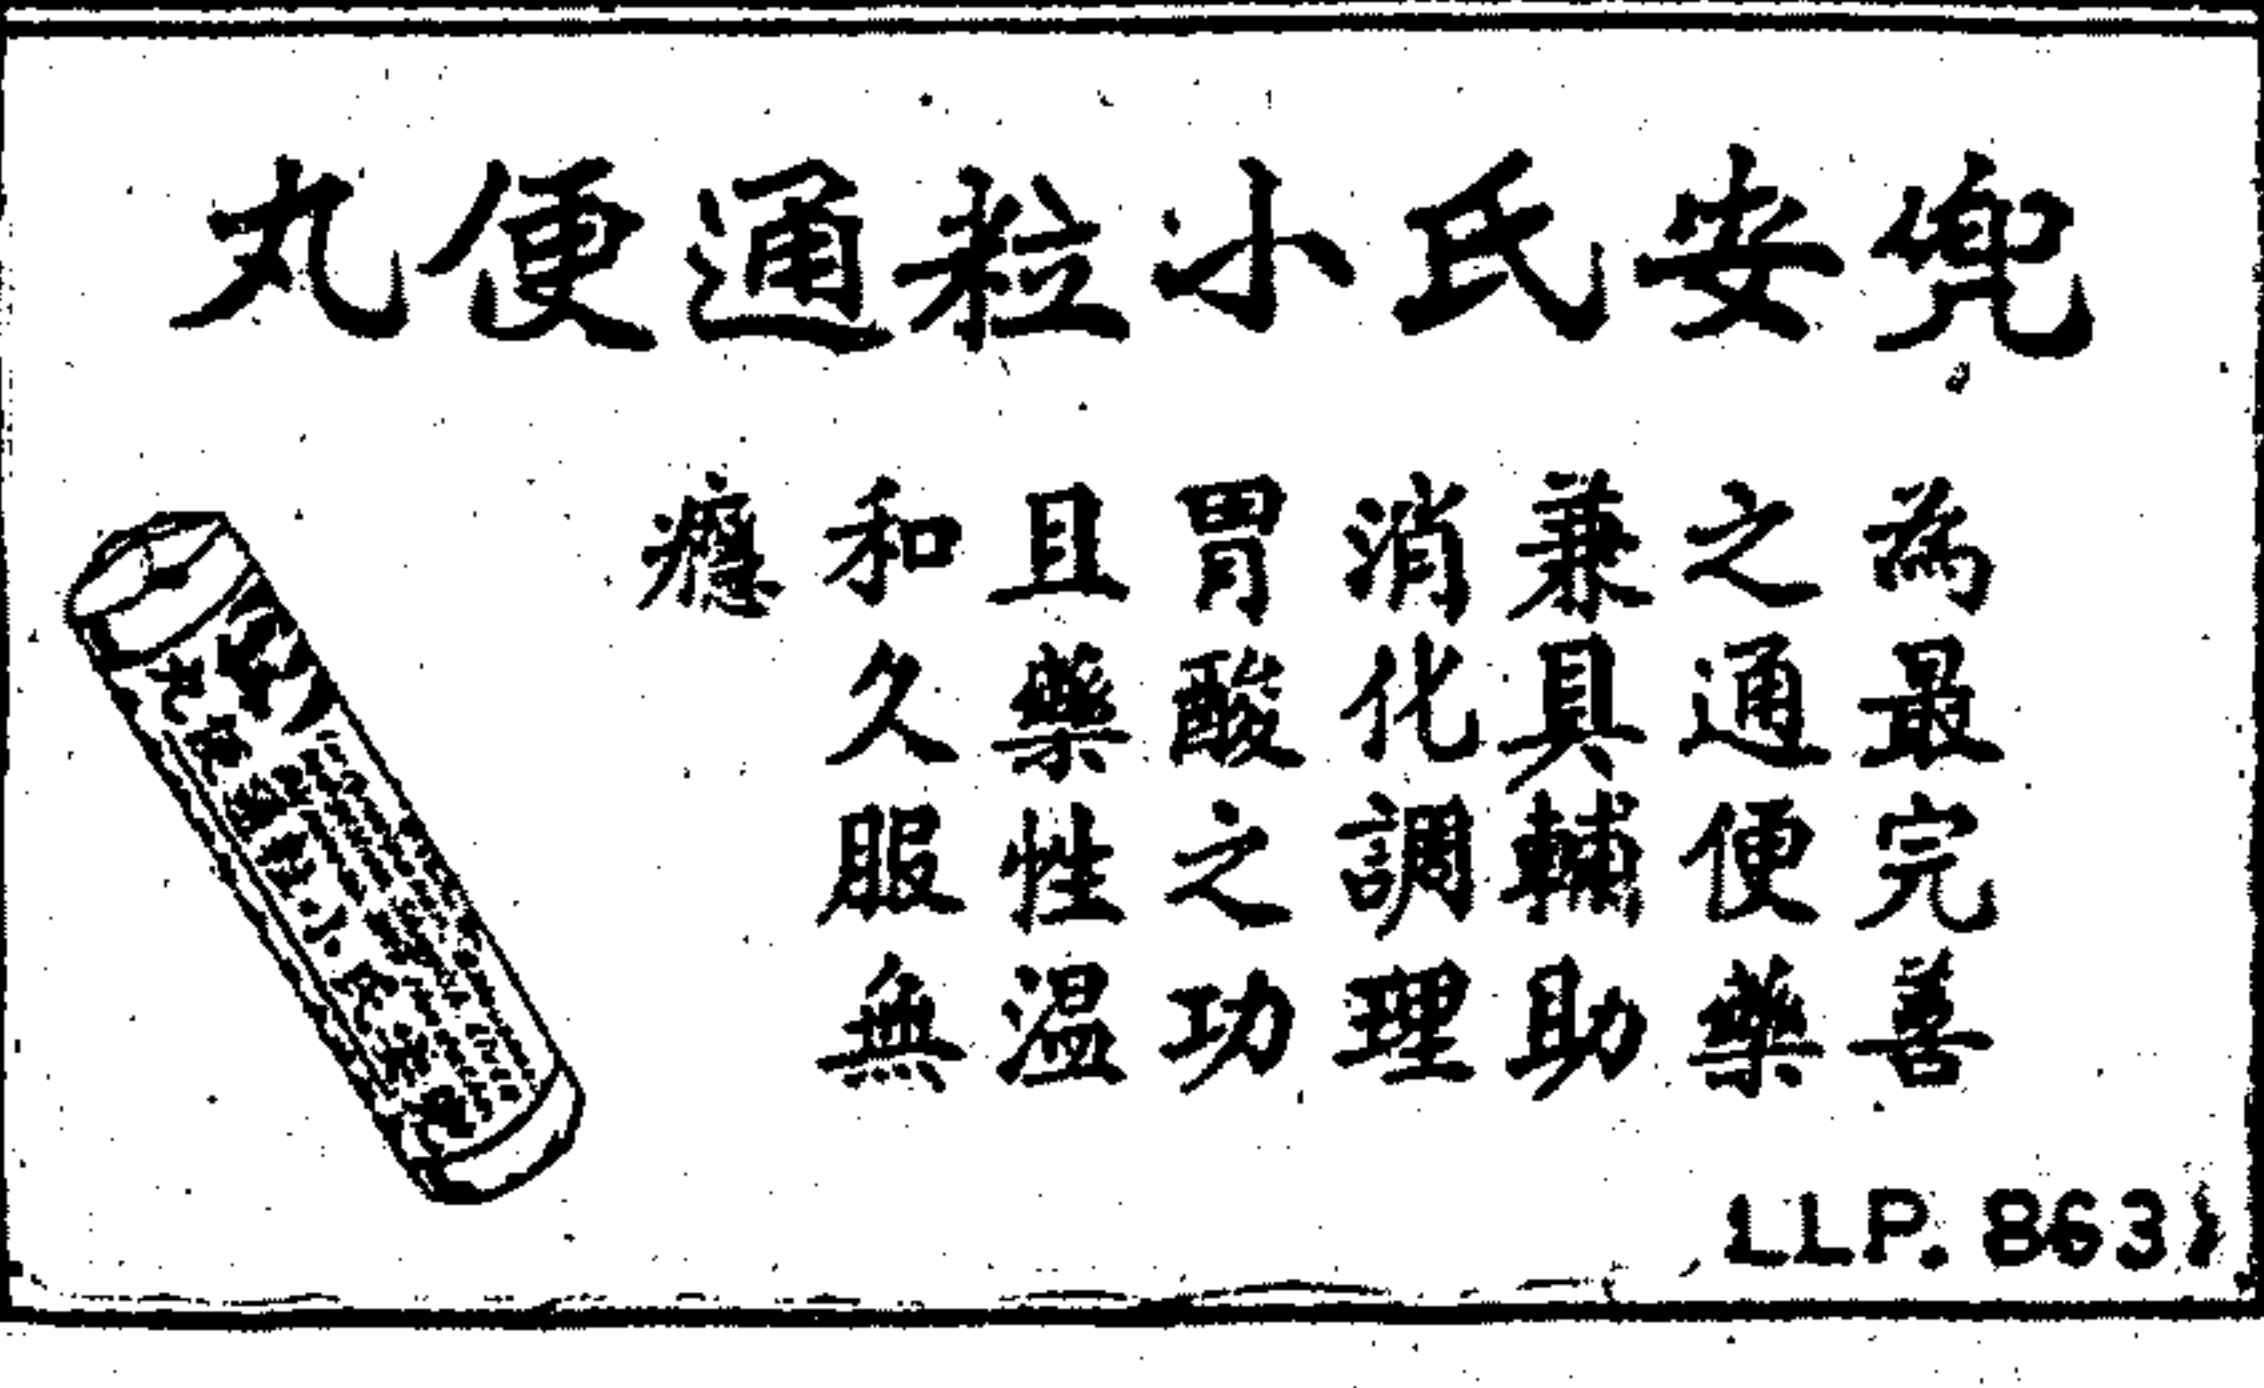 兜安氏小粒通便丸
為最完善
之通便藥
兼具輔助
消化調理
胃酸之功
且藥性溫
和久服無
癮
LLP. 863